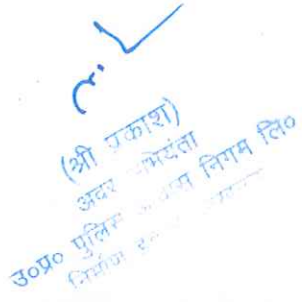 (श्री प्रकाश)
अवर अभियंता
उ०प्र० पुलिस आवास निगम लि०
निर्माण